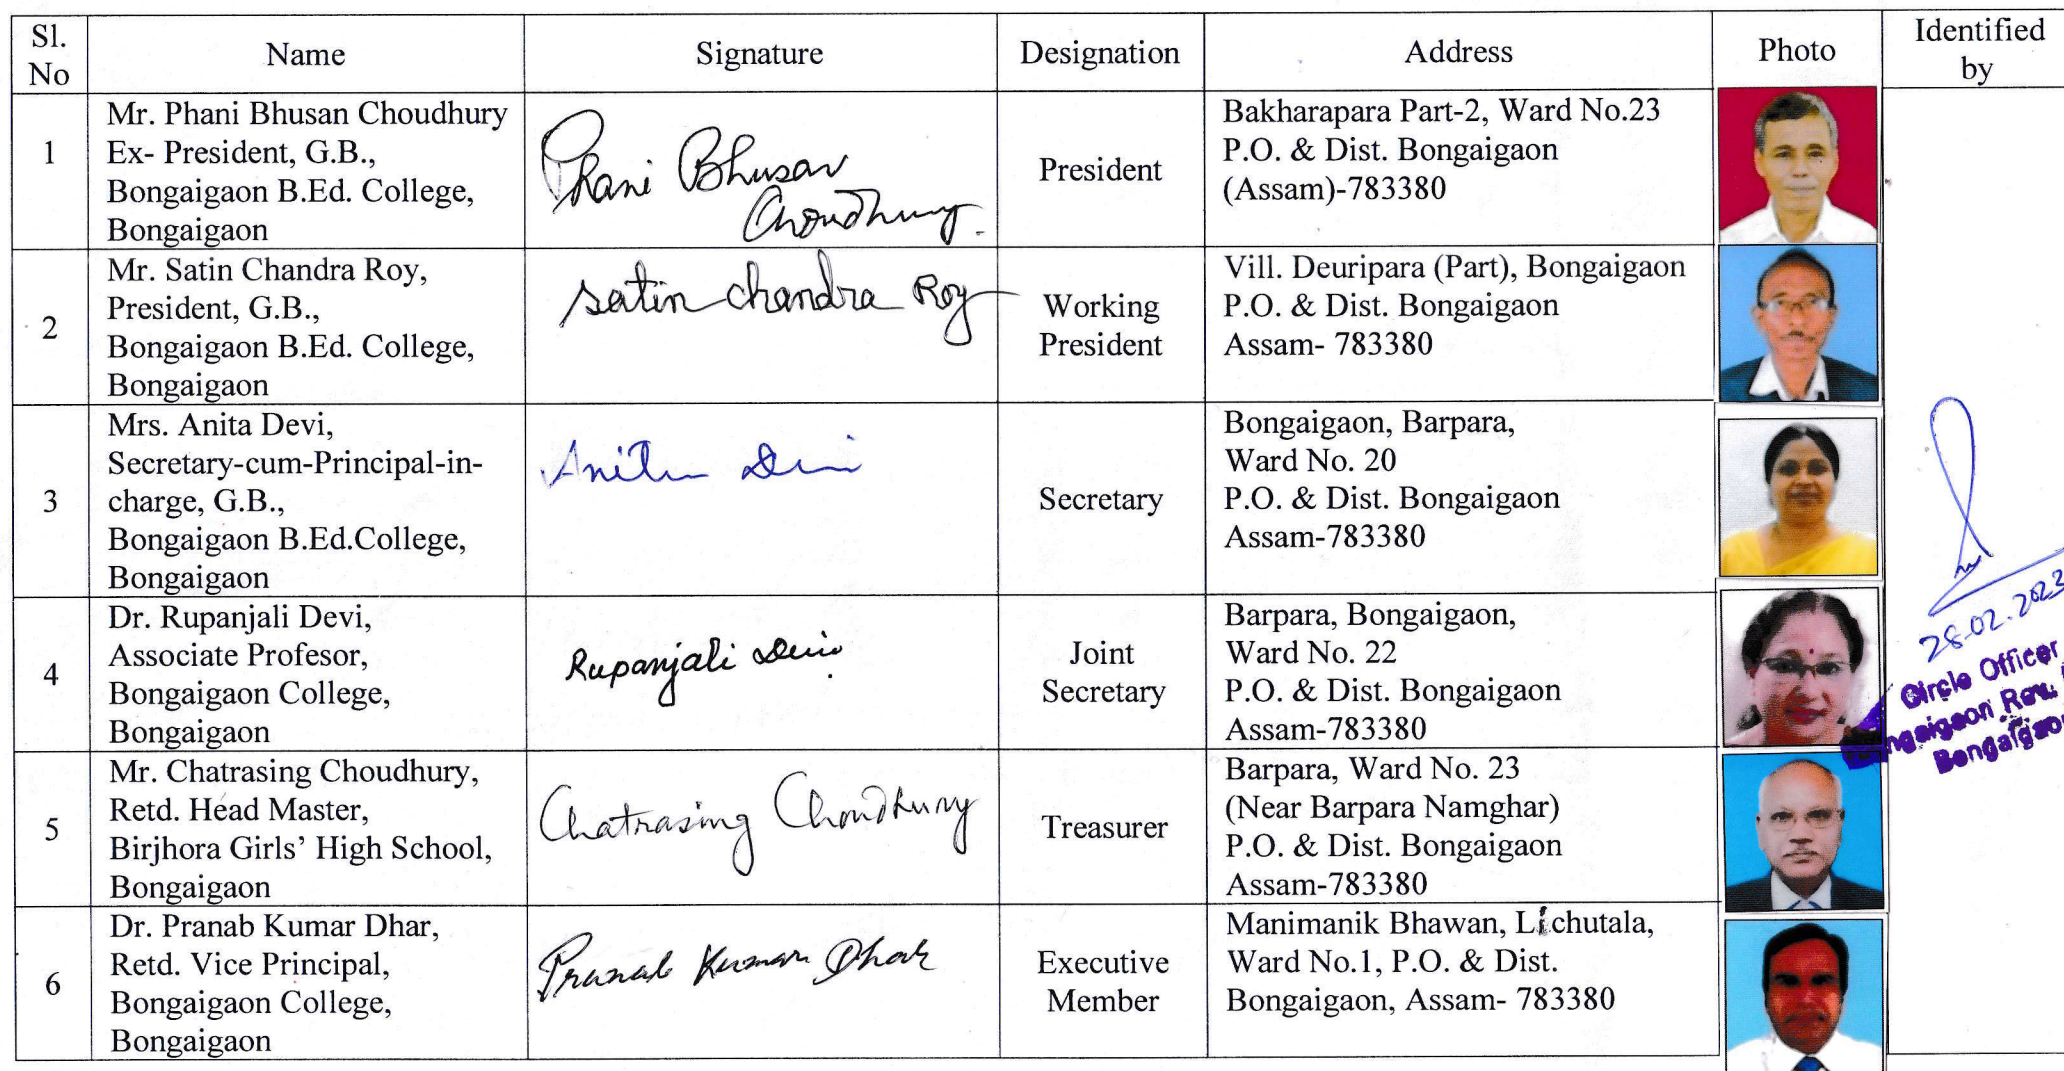 Sl. No
Name
Signature
Designation
Address
Photo
Identified by
1
Mr. Phani Bhusan Choudhury
Ex- President, G.B.,
Bongaigaon B.Ed. College,
Bongaigaon
Phani Bhusan
Choudhury.
President
Bakharapara Part-2, Ward No.23
P.O. & Dist. Bongaigaon
(Assam)-783380
2
Mr. Satin Chandra Roy,
President, G.B.,
Bongaigaon B.Ed. College,
Bongaigaon
Satin chandra Roy
Working
President
Vill. Deuripara (Part), Bongaigaon
P.O. & Dist. Bongaigaon
Assam- 783380
3
Mrs. Anita Devi,
Secretary-cum-Principal-in-
charge, G.B.,
Bongaigaon B.Ed.College,
Bongaigaon
Anita Devi
Secretary
Bongaigaon, Barpara,
Ward No. 20
P.O. & Dist. Bongaigaon
Assam-783380
28.02.2023
Circle Officer
ngaigaon Rev.
Bongaigaon
4
Dr. Rupanjali Devi,
Associate Profesor,
Bongaigaon College,
Bongaigaon
Rupanjali Devi
Joint
Secretary
Barpara, Bongaigaon,
Ward No. 22
P.O. & Dist. Bongaigaon
Assam-783380
5
Mr. Chatrasing Choudhury,
Retd. Head Master,
Birjhora Girls' High School,
Bongaigaon
Chatrasing Choudhury
Treasurer
Barpara, Ward No. 23
(Near Barpara Namghar)
P.O. & Dist. Bongaigaon
Assam-783380
6
Dr. Pranab Kumar Dhar,
Retd. Vice Principal,
Bongaigaon College,
Bongaigaon
Pranab Kumar Dhar
Executive
Member
Manimanik Bhawan, Lichutala,
Ward No.1, P.O. & Dist.
Bongaigaon, Assam- 783380